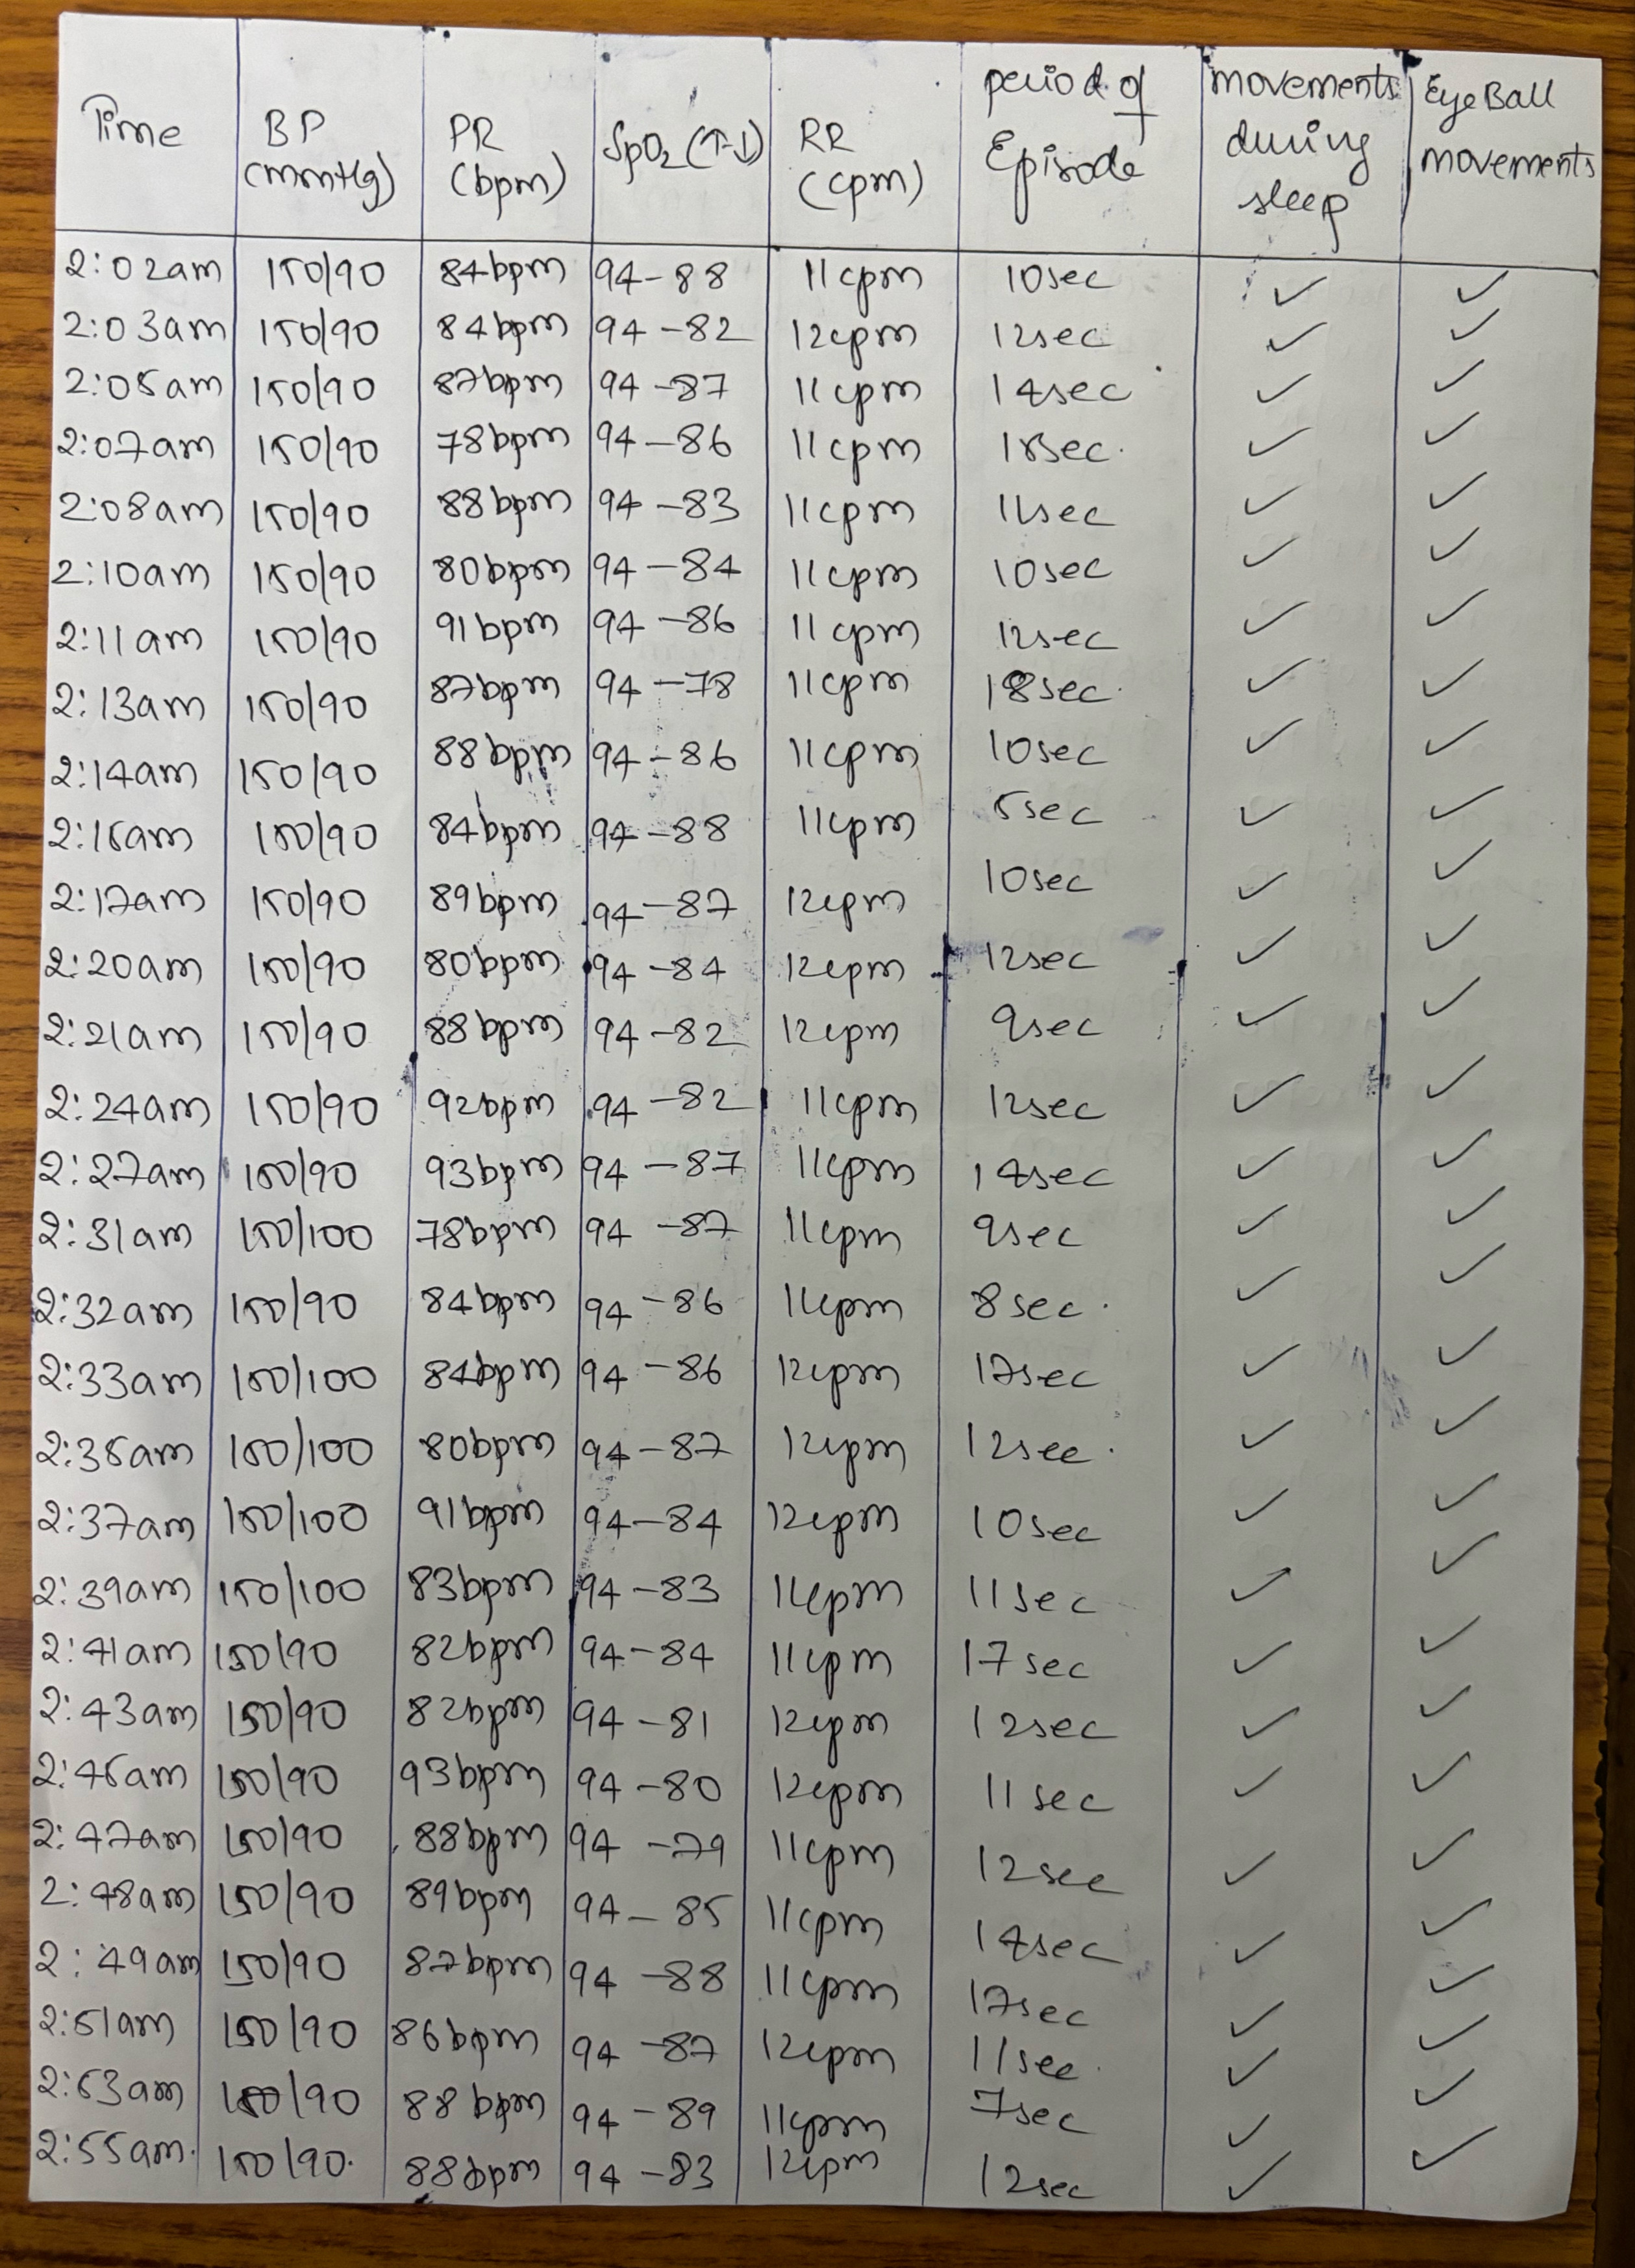 Time BP (mmHg) PR (bpm) SpO2 (↑-↓) RR (cpm) period of Episode movements during sleep Eye Ball movements
2:02am 150/90 84bpm 94-88 11cpm 10sec ✓ ✓
2:03am 150/90 84bpm 94-82 12cpm 12sec ✓ ✓
2:05am 150/90 87bpm 94-87 11cpm 14sec ✓ ✓
2:07am 150/90 78bpm 94-86 11cpm ✓ ✓
2:08am 150/90 88bpm 94-83 11cpm 11sec ✓ ✓
2:10am 150/90 80bpm 94-84 11cpm 10sec ✓ ✓
2:11am 150/90 91bpm 94-86 11cpm 12sec ✓ ✓
2:13am 150/90 87bpm 94-78 11cpm 18sec ✓ ✓
2:14am 150/90 88bpm 94-86 11cpm 10sec ✓ ✓
2:15am 150/90 84bpm 94-88 11cpm 5sec ✓ ✓
2:17am 150/90 89bpm 94-87 12cpm 10sec ✓ ✓
2:20am 150/90 80bpm 94-84 12cpm 12sec ✓ ✓
2:21am 150/90 88bpm 94-82 12cpm 9sec ✓ ✓
2:24am 150/90 92bpm 94-82 11cpm 12sec ✓ ✓
2:27am 150/90 93bpm 94-87 11cpm 14sec ✓ ✓
2:31am 150/100 78bpm 94-87 11cpm 9sec ✓ ✓
2:32am 150/90 84bpm 94-86 11cpm 8sec ✓ ✓
2:33am 150/100 84bpm 94-86 12cpm 17sec ✓ ✓
2:35am 150/100 80bpm 94-87 12cpm 12sec ✓ ✓
2:37am 150/100 91bpm 94-84 12cpm 10sec ✓ ✓
2:39am 150/100 83bpm 94-83 11cpm 11sec ✓ ✓
2:41am 150/90 82bpm 94-84 11cpm 17sec ✓ ✓
2:43am 150/90 82bpm 94-81 12cpm 12sec ✓ ✓
2:45am 150/90 93bpm 94-80 12cpm 11sec ✓ ✓
2:47am 150/90 88bpm 94-79 11cpm 12sec ✓ ✓
2:48am 150/90 89bpm 94-85 11cpm 14sec ✓ ✓
2:49am 150/90 87bpm 94-88 11cpm 17sec ✓ ✓
2:51am 150/90 86bpm 94-87 12cpm 11sec ✓ ✓
2:53am 150/90 88bpm 94-89 11cpm 7sec ✓ ✓
2:55am. 150/90. 88bpm 94-83 12cpm 12sec ✓ ✓